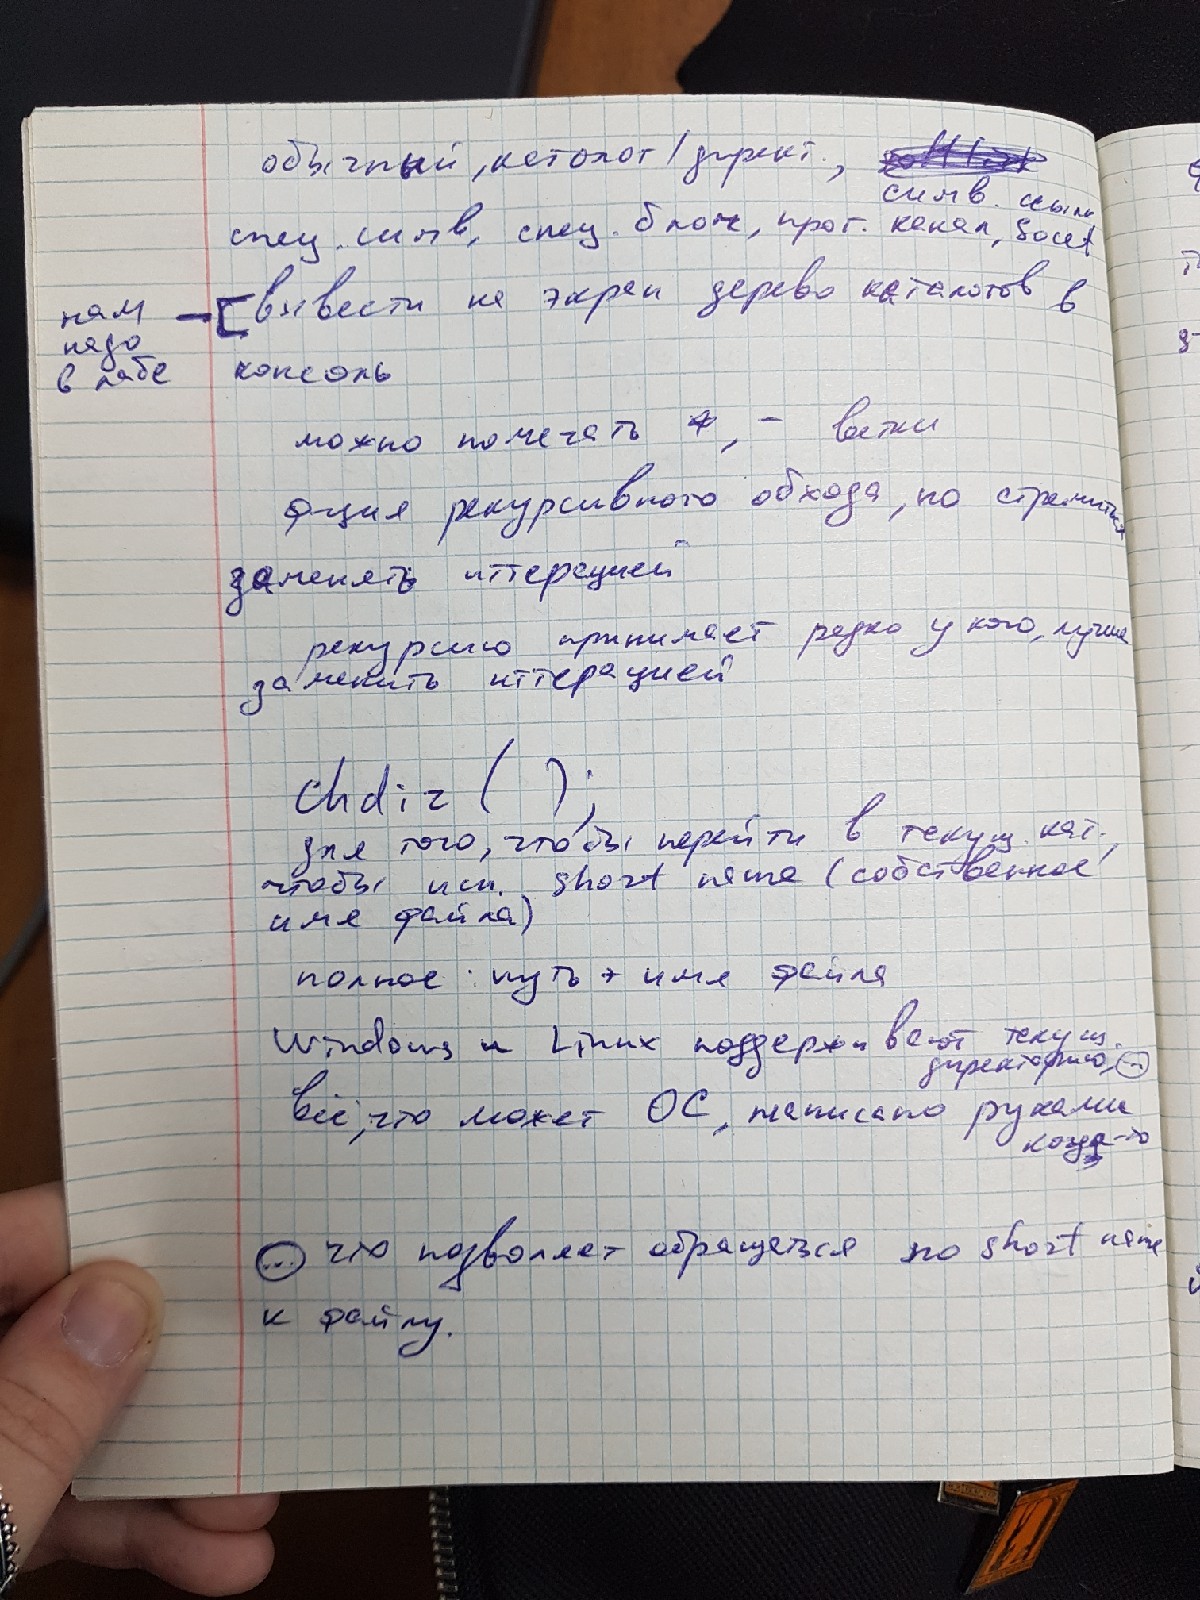 обычный, каталог/директ.,
симв. ссылк
спец. симв, спец. блоч, прог. канал, Socet
нам
надо
в лабе
вывести на экран дерево каталогов в
консоль
можно помечать +, - ветки
ф-ция рекурсивного обхода, но стремиться
заменять иттерацией
рекурсию принимает редко у кого, лучше
заменить иттерацией
chdir ( );
для того, чтобы перейти в текущ. кат.,
чтобы исп. short name (собственное
имя файла)
полное: путь + имя файла
Windows и Linux поддерживают текущ.
директорию, ...
всё, что может ОС, написано руками
когда-то
... что позволяет обращаться по short name
к файлу.